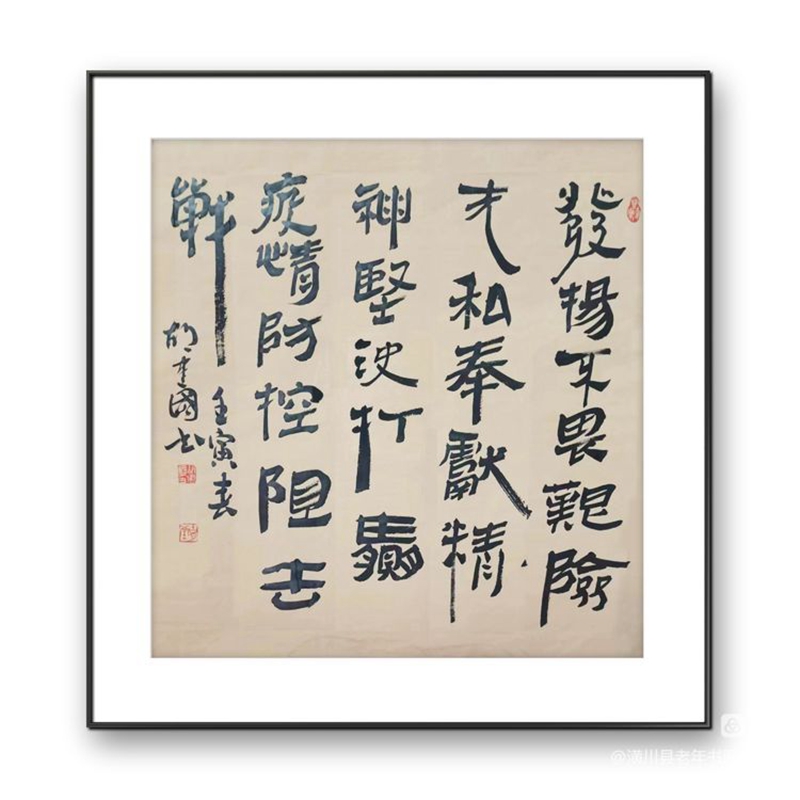 發揚不畏艱險
无私奉獻精
神堅決打贏
疫情防控阻击
戰
壬寅春
胡國书
@潢川县老年